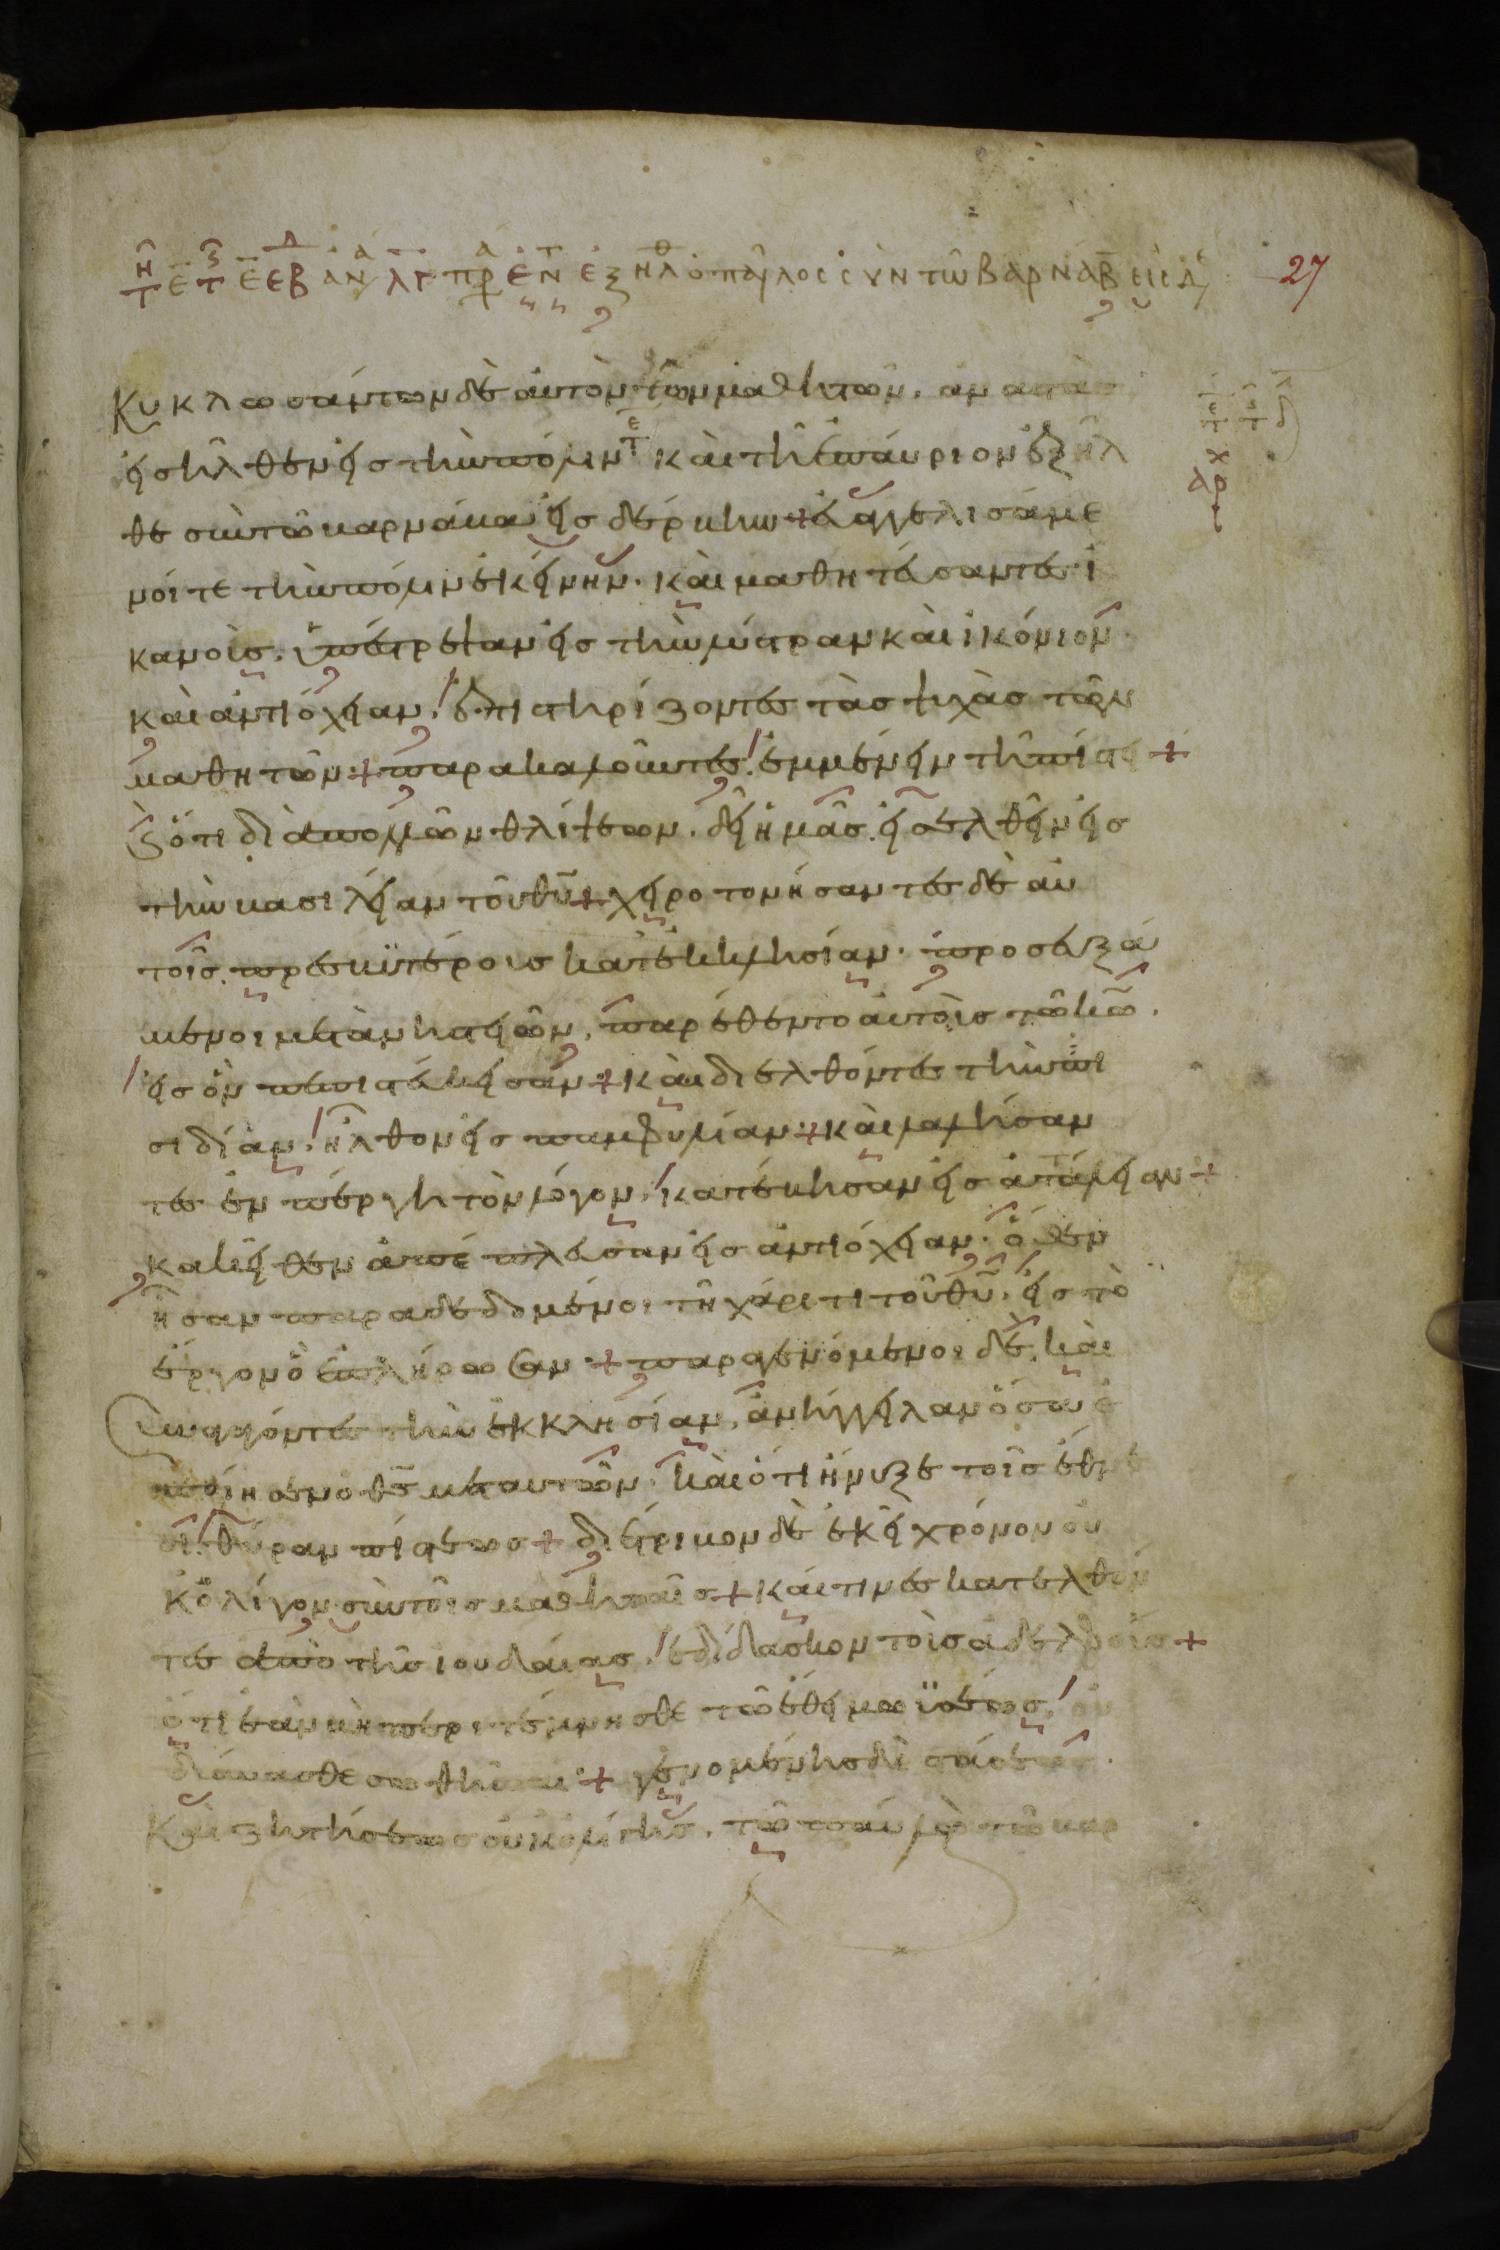 27
κυκλωσάντων δὲ αὐτὸν τῶν μαθητῶν. ἀναστὰσ
εἰσῆλθεν εἰσ τὴν πόλιν καὶ τῆ ἐπάυριον ἐξῆλ
θε σὺν τῶ βαρνάβα εἰσ δέρβην + ἐυαγγελισάμε
νοί τε τὴν πόλιν ἐκείνην. καὶ μαθητεύσαντεσ ἱ
κανοὺσ. ὑπέστρεψαν εἰσ τὴν λύστραν καὶ ἰκόνιον
καὶ ἀντιόχειαν. ἐπιστηρίζοντεσ τὰσ ψυχὰσ τῶν
μαθητῶν + παρακαλοῦντεσ. ἐμμένειν τῆ πίστει +
ὅτι διὰ πολλῶν θλίψεων. δεῖ ἡμᾶσ εἰσελθεῖν εἰσ
τὴν βασιλείαν τοῦ θῦ + χειροτονήσαντεσ δὲ αὐ
τοῖσ πρεσβυτέρουσ κατ ἐκκλησίαν. προσευξά
μενοι μετὰ νηστειῶν. παρέθεντο αὐτοὺσ τῶ κῶ.
εἰσ ὃν πεπιστεύκεισαν + καὶ διελθόντεσ τὴν πι
σιδίαν. ἦλθον εἰσ παμφυλίαν + καὶ λαλήσαν
τεσ ἐν πέργη τὸν λόγον. κατέβησαν εἰσ ἀττάλειαν +
κακεῖθεν ἀπέπλευσαν εἰσ ἀντιόχειαν. ὅθεν
ἦσαν παραδεδομένοι τῆ χάριτι τοῦ θῦ. εἰσ τὸ
ἔργον ὃ ἐπλήρωσαν + παραγενόμενοι δὲ. καὶ
συναγαγόντεσ τὴν ἐκκλησίαν. ἀνήγγειλαν ὅσα ἐ
ποίησεν ὁ θσ μετ αυτῶν. καὶ ὅτι ἤνυξε τοῖσ ἔθνε
σι θύραν πίστεωσ + διέτριβον δὲ ἐκεῖ χρόνον οὐ
κ ὀλίγον σὺν τοῖσ μαθηταῖσ + καί τινεσ κατελθόν
τεσ ἀπὸ τῆσ ιουδαίασ. ἐδίδασκον τοὺσ ἀδελφοὺσ +
ὅτι ἐὰν μὴ περιτέμνησθε τῶ ἔθει μωϋσέωσ. οὐ
δύνασθε σωθῆναι + γενομένησ δὲ στάσεωσ.
καὶ ζητήσεωσ οὐκ ὀλίγησ. τῶ παύλω καὶ τῶ βαρ